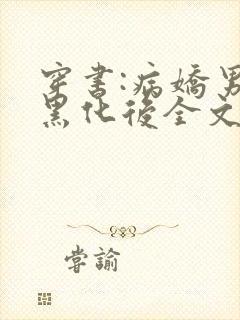 穿書:病嬌男
黑化後全文
嘗諭